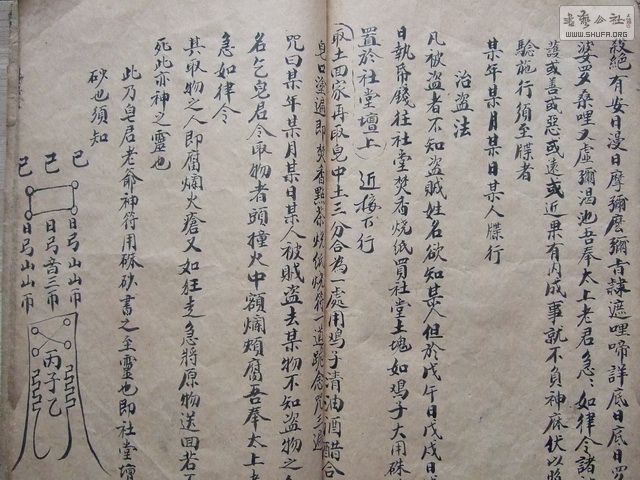 殺絕有安日漫日摩彌麼彌吉隸遮哩啼詳底日底日罗
婆罗桑哩天虛彌渴池吾奉太上老君急急如律令諸
議或善或惡或遠或近果有内成事就不負神庥伏以照
驗施行須至牒者
某年某月某日某人牒行
治盗法
凡被盗者不知盗賊姓名欲知某人但於戊午日戊戌日
日執帛錢往社堂焚香燒纸買社堂土塊如鸡子大用硃
置於社堂壇上 近接下行
取土四家再取皂中土三分合為一處用鸡子清油酒醋合
皂口塗遍即焚香點茶燒纸燒符一道跪念咒三遍
咒曰某年某月某日某人被賊盗去某物不知盗物之
名乞皂君令取物者頭撞火中額爛頰腐吾奉太上老
急如律令
其取物之人即腐爛火瘡又如狂走急將原物送回若不
死此亦神之靈也
此乃皂君老爺神符用硃砂書之至靈也即社堂壇
砂也須知
已 己 已
日弓山山帀
日弓音三帀
日弓山山帀
丙子乙
弓弓弓
弓弓弓
书艺公社
WWW.SHUFA.ORG